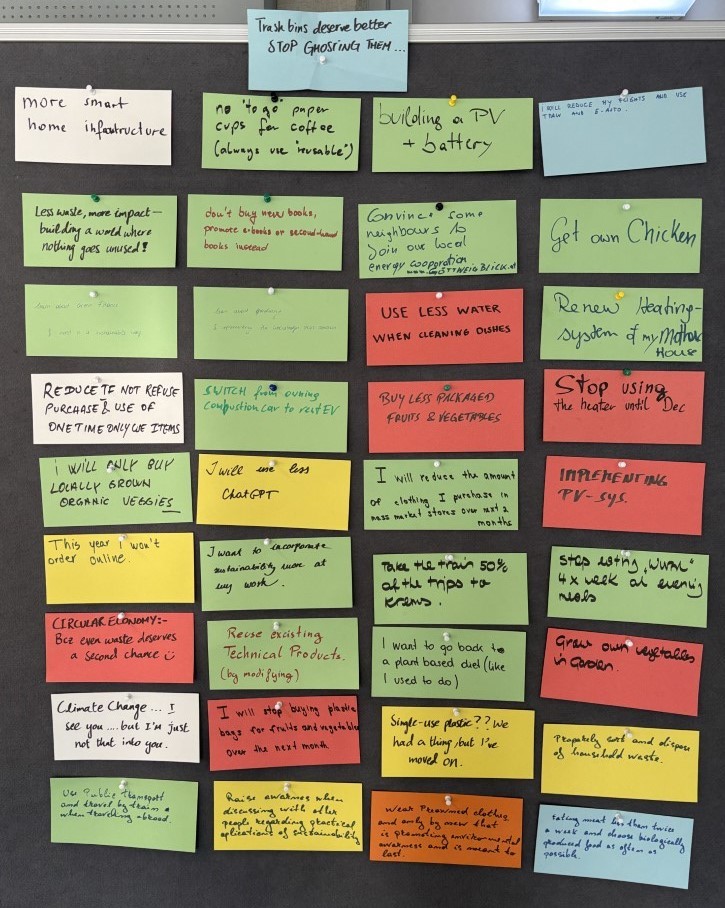 Trash bins deserve better
STOP GHOSTING THEM...
more smart
home infrastructure
no "to go" paper
cups for coffee
(always use "reusable")
building a PV
+ battery
I WILL REDUCE MY FLIGHTS AND USE
TRAIN AND E-AUTO.
Less waste, more impact—
building a world where
nothing goes unused!
don't buy new books,
promote e-books or second-hand
books instead
Convince some
neighbours to
join our local
energy cooporation
Get own Chicken
USE LESS WATER
WHEN CLEANING DISHES
Renew Heating-
system of my Mothers
House
REDUCE IF NOT REFUSE
PURCHASE & USE OF
ONE TIME ONLY USE ITEMS
SWITCH from owning
combustion car to rent EV
BUY LESS PACKAGED
FRUITS & VEGETABLES
Stop using
the heater until Dec
I WILL ONLY BUY
LOCALLY GROWN
ORGANIC VEGGIES
I will use less
ChatGPT
I will reduce the amount
of clothing I purchase in
mass market stores over next 2
months
IMPLEMENTING
PV-SYS.
This year I won't
order online.
I want to incorporate
sustainability more at
my work.
Take the train 50%
of the trips to
Krems.
Stop eating "Wurst"
4x week at evening
meals
CIRCULAR ECONOMY:-
Bcz even waste deserves
a second chance ☺
Reuse excisting
Technical Products.
(by modifying)
I want to go back to
a plant based diet (like
I used to do)
Grow own vegetables
in Garden.
Climate Change... I
see you....but I'm just
not that into you.
I will stop buying plastic
bags for fruits and vegetables
over the next month
Single-use plastic?? We
had a thing but I've
moved on.
Propately sort and dispose
of household waste.
Use Public Transport
and travel by train
when traveling abroad.
Raise awarness when
discussing with other
people regarding practical
aplications of sustainability
Wear Preowned clothes
and only buy new that
is promoting environmental
awarness and is meant to
last.
Eating meat less than twice
a week and choose biologically
produced food as often as
possible.